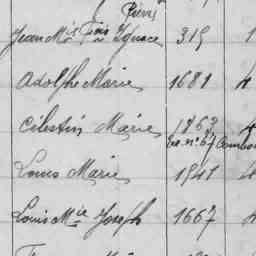 Pierre
Jean Mie Fois Ignace 319 1
Adolphe Marie 1681 4
Célestin Marie 1863 4
Louis Marie 1941 4
Louis Mie Joseph 1667 4